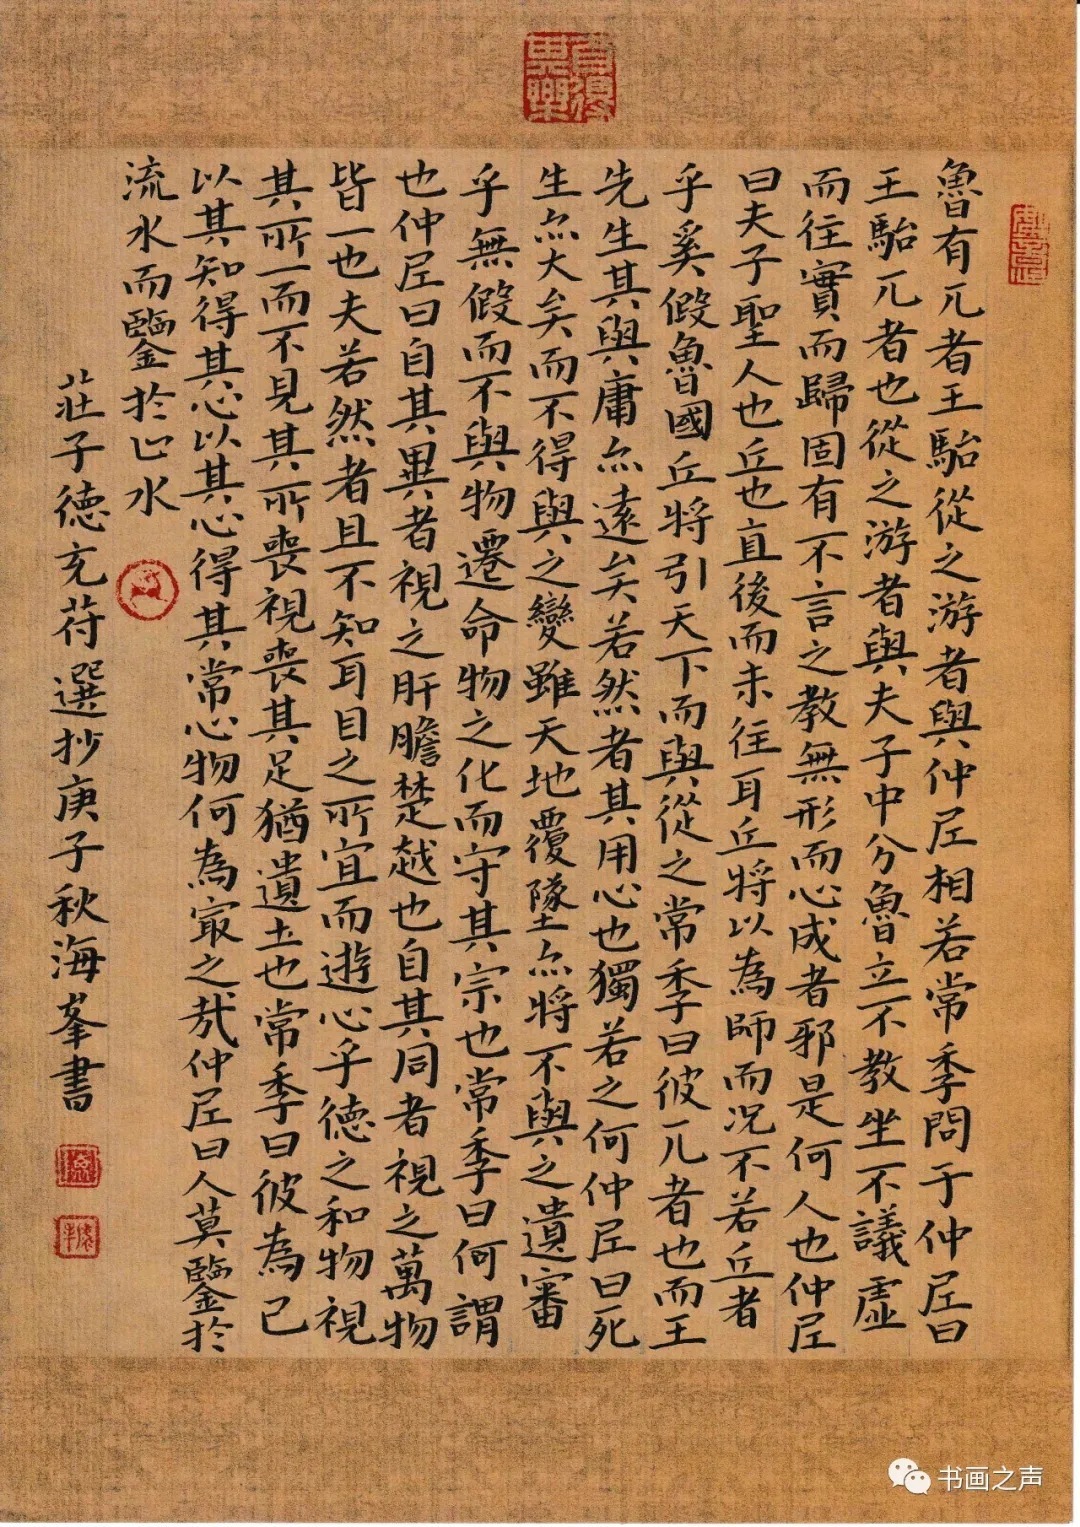 魯有兀者王駘從之游者與仲尼相若常季問于仲尼曰
王駘兀者也從之游者與夫子中分魯立不教坐不議虛
而往實而歸固有不言之教無形而心成者邪是何人也仲尼
曰夫子聖人也丘也直後而未往耳丘將以為師而况不若丘者
乎奚假魯國丘將引天下而與從之常季曰彼兀者也而王
先生其與庸亦遠矣若然者其用心也獨若之何仲尼曰死
生亦大矣而不得與之變雖天地覆墜亦將不與之遺審
乎無假而不與物遷命物之化而守其宗也常季曰何謂
也仲尼曰自其異者視之肝膽楚越也自其同者視之萬物
皆一也夫若然者且不知耳目之所宜而遊心乎德之和物視
其所一而不見其所喪視喪其足猶遺土也常季曰彼為己
以其知得其心以其心得其常心物何為冣之哉仲尼曰人莫鑒於
流水而鑒於止水
莊子德充苻選抄庚子秋海峯書
书画之声